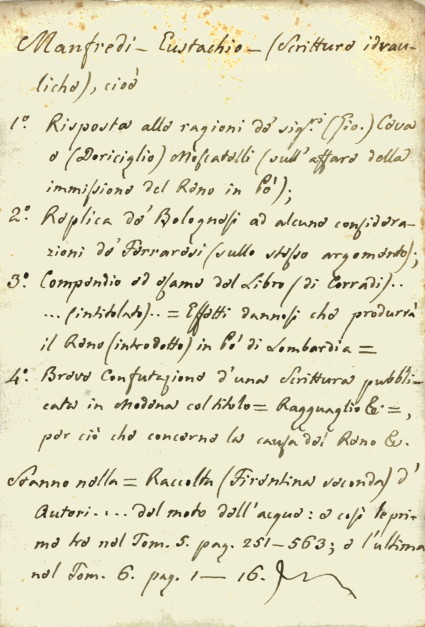 Manfredi - Eustachio - (Scritture idrau-
liche), cioè
1º Risposta alle ragioni de' sigri (Gio.) Ceva
e (Doriciglio) Moscatelli (sull'affare della
immissione del Reno in Pò);
2º Replica de' Bolognesi ad alcune considera-
zioni de' Ferraresi (sullo stesso argomento);
3º Compendio ed esame del Libro (di Corradi)..
... (intitolato).. = Effetti dannosi che produrrà
il Reno (introdotto) in Pò di Lombardia =
4º Breve Confutazione d'una Scrittura pubbli-
cata in Modena col titolo = Ragguaglio &c =,
per ciò che concerne la causa del Reno &c.
Stanno nella = Raccolta (Fiorentina seconda) d'
Autori.... del moto dell'acque: e così le pri-
me tre nel Tom. 5. pag. 251-563; e l'ultima
nel Tom. 6. pag. 1-16.